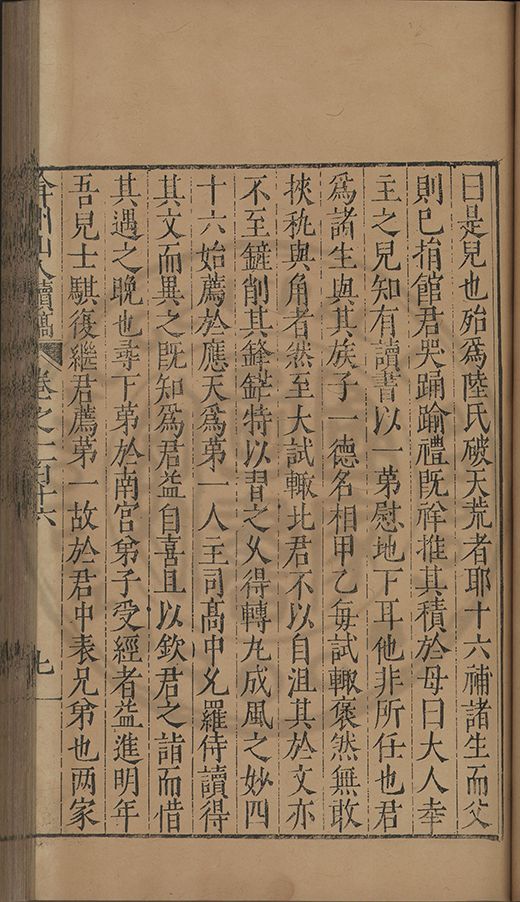 曰是兒也殆爲陸氏破天荒者耶十六補諸生而父
則已捐館君哭踊踰禮旣祥推其積於母曰大人幸
主之兒知有讀書以一第慰地下耳他非所任也君
爲諸生與其族子一德名相甲乙每試輙褎然無敢
挾秇與角者然至大試輙北君不以自沮其於文亦
不至鏟削其鋒鍔特以習之乆得轉丸成風之妙四
十六始薦於應天爲第一人主司髙中允羅侍讀得
其文而異之旣知爲君益自喜且以欽君之詣而惜
其遇之晚也尋下第於南宮弟子受經者益進明年
吾兒士騏復繼君薦第一故於君中表兄弟也两家
弇州山人續稿 卷之一百十六 九